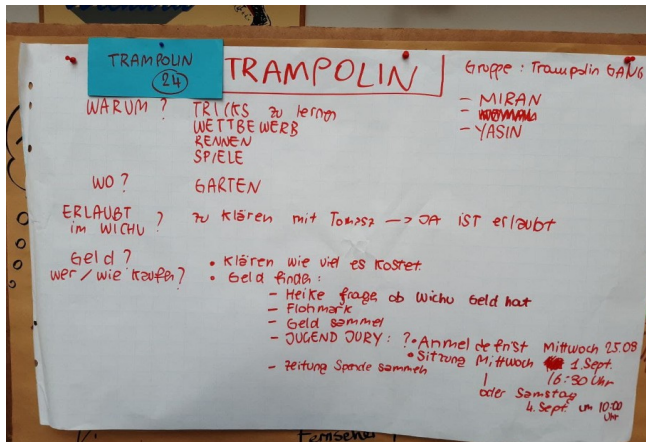 TRAMPOLIN
24
TRAMPOLIN
Gruppe : Trampolin GANG
- MIRAN
-
- YASIN
WARUM ? TRICKS zu lernen
WETTBEWERB
RENNEN
SPIELE
WO ? GARTEN
ERLAUBT im WICHU ? zu klären mit Tomasz → JA IST erlaubt
Geld ?
wer / wie kaufen ?
• Klären wie viel es kostet
• Geld finden :
- Heike frage ob Wichu Geld hat
- Flohmark
- Geld sammel
- JUGEND JURY : ? • Anmeldefrist Mittwoch 25.08
• Sitzung Mittwoch 1. Sept.
16:30 Uhr
oder Samstag
4. Sept. um 10:00 Uhr
- Zeitung Spende sammeln
Fernseher